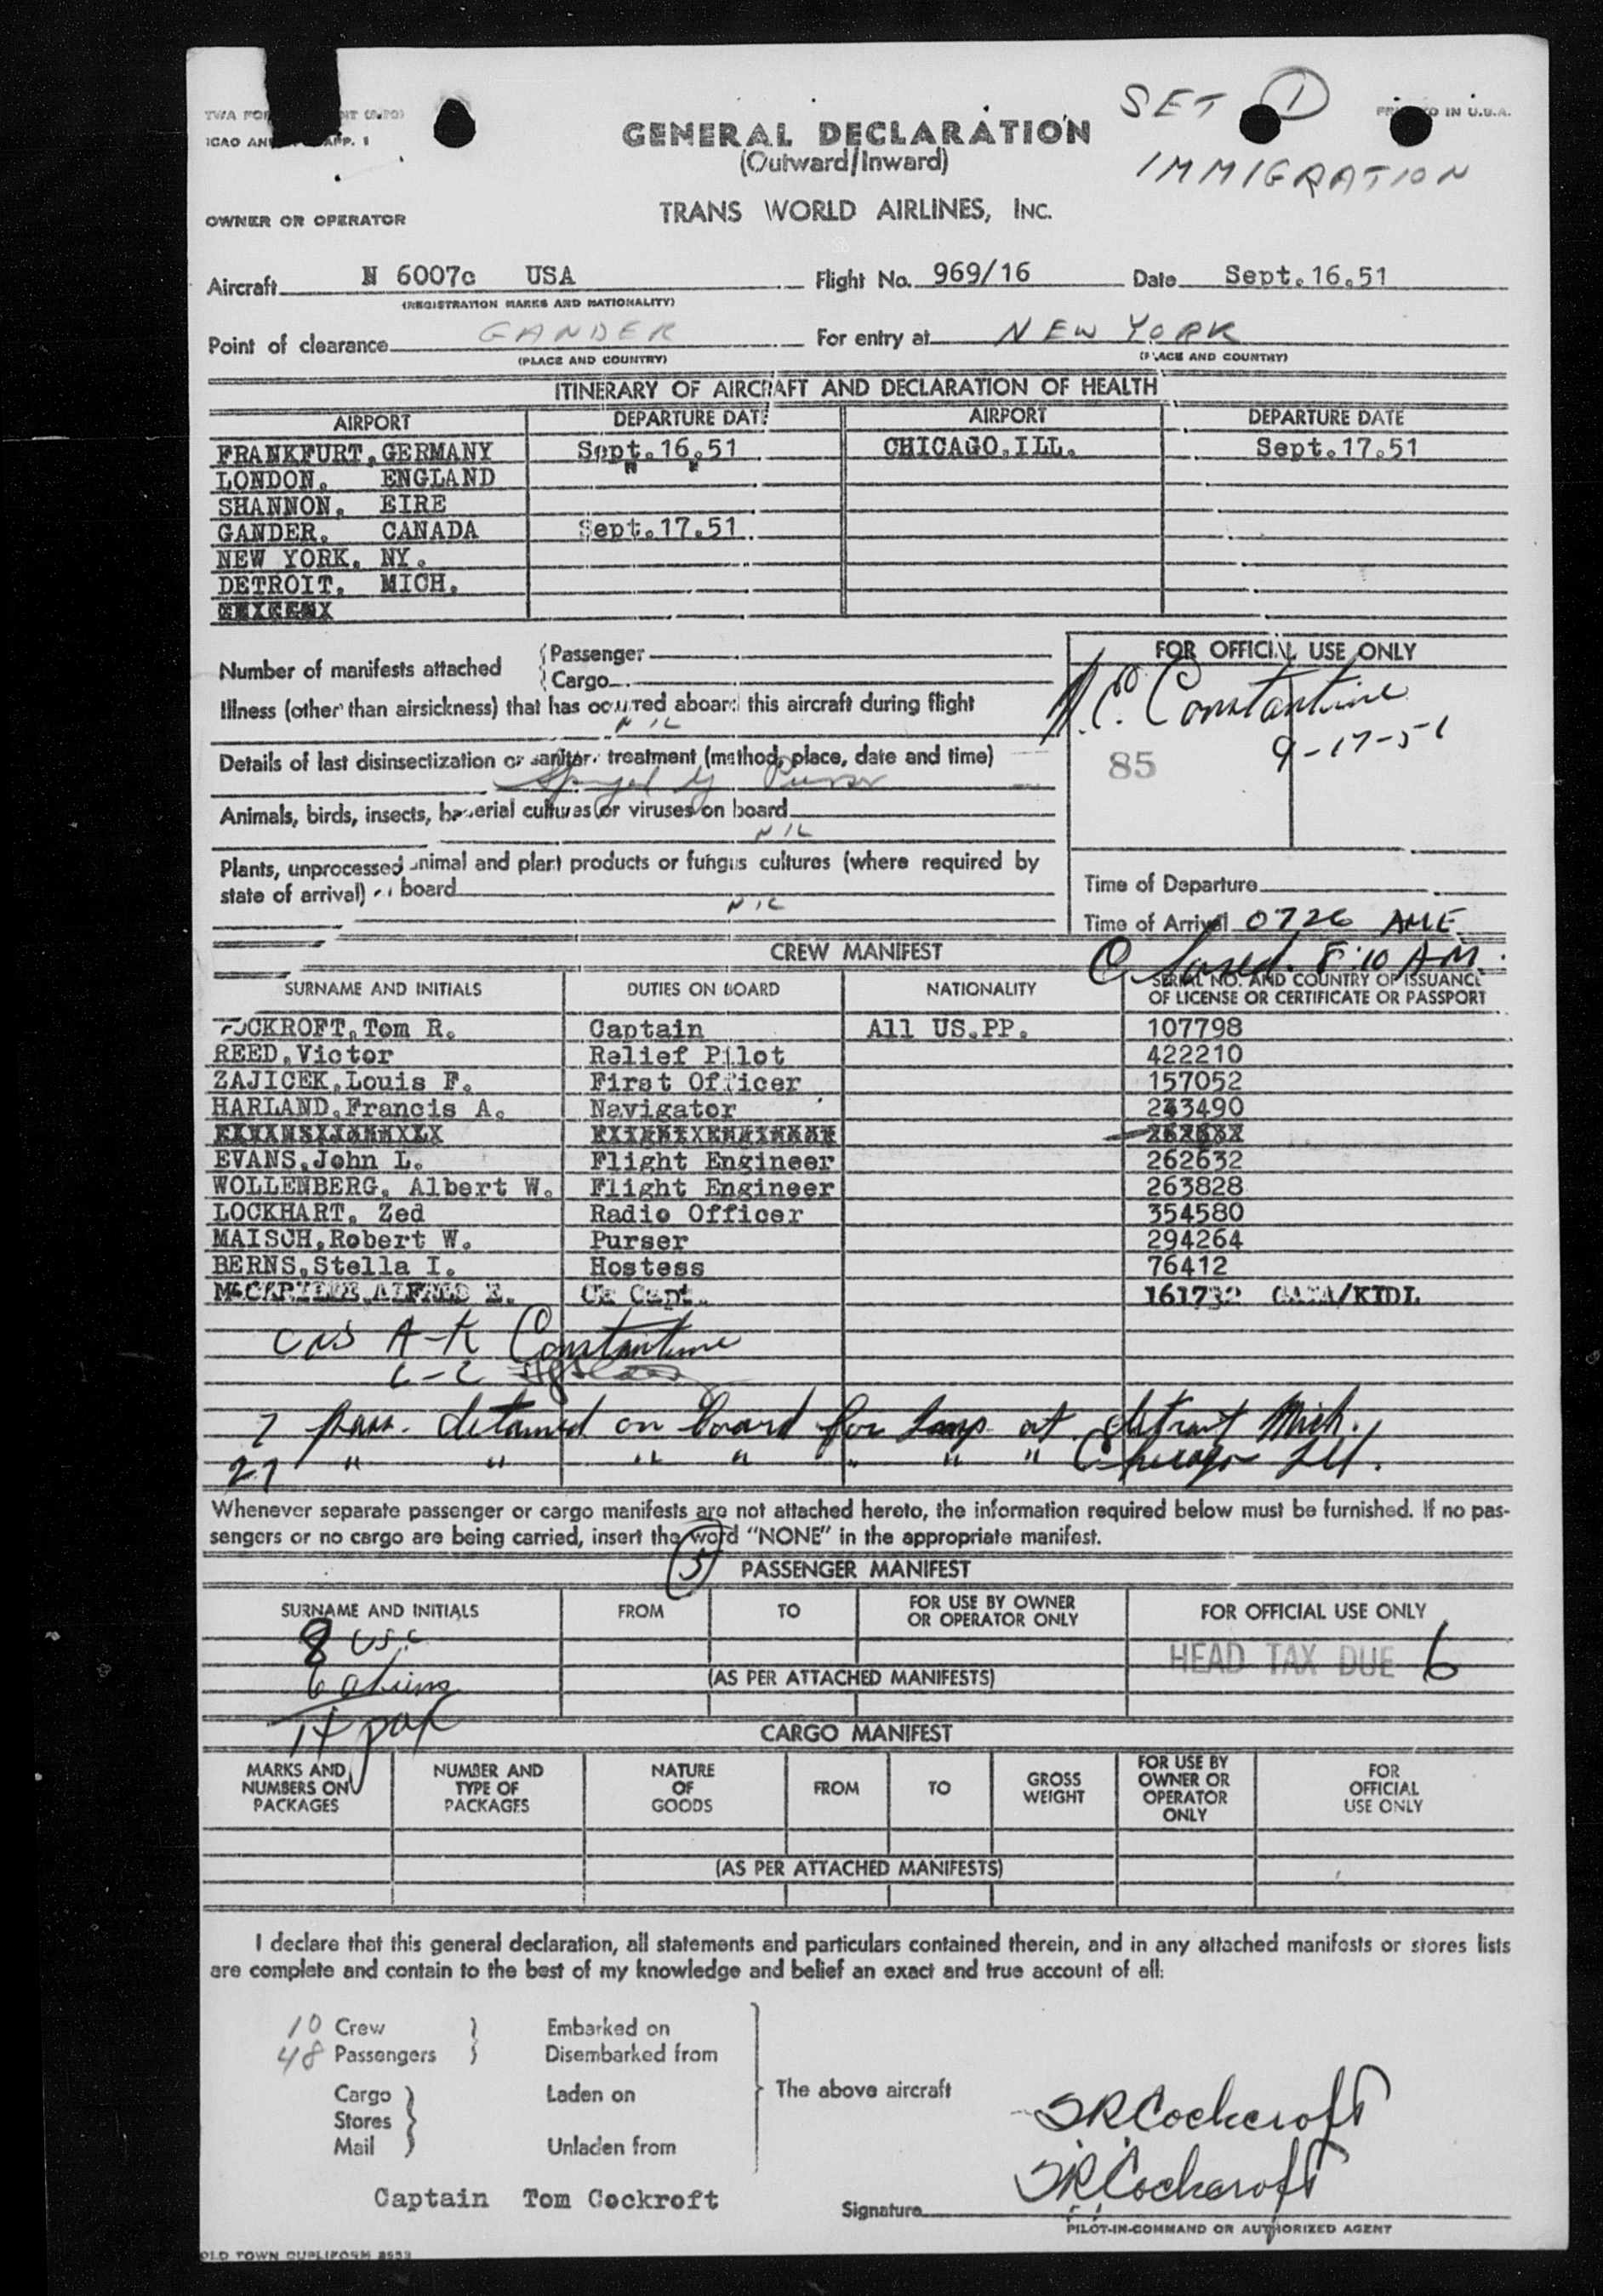 SET 1
TWA FOR NT
PR D IN U.S.A.
ICAO AN APP. 1
GENERAL DECLARATION
(Outward/Inward)
IMMIGRATION
OWNER OR OPERATOR
TRANS WORLD AIRLINES, INC.
Aircraft N 6007c USA Flight No. 969/16 Date Sept.16.51
(REGISTRATION MARKS AND NATIONALITY)
Point of clearance GANDER For entry at NEW YORK
(PLACE AND COUNTRY) (PLACE AND COUNTRY)
ITINERARY OF AIRCRAFT AND DECLARATION OF HEALTH
AIRPORT DEPARTURE DATE AIRPORT DEPARTURE DATE
FRANKFURT,GERMANY Sept.16.51 CHICAGO.ILL. Sept.17.51
LONDON. ENGLAND " "
SHANNON. EIRE
GANDER. CANADA Sept.17.51.
NEW YORK. NY.
DETROIT. MICH.
Number of manifests attached { Passenger
{ Cargo
FOR OFFICIAL USE ONLY
Illness (other than airsickness) that has occurred aboard this aircraft during flight
NIL
Constantine
9-17-51
Details of last disinsectization or sanitary treatment (method, place, date and time)
85
Purser
Animals, birds, insects, bacterial cultures or viruses on board
NIL
Plants, unprocessed animal and plant products or fungus cultures (where required by
state of arrival) on board
NIL
Time of Departure
Time of Arrival 0726 AME
CREW MANIFEST
Closed. 8:10 AM.
SURNAME AND INITIALS DUTIES ON BOARD NATIONALITY SERIAL NO. AND COUNTRY OF ISSUANCE
OF LICENSE OR CERTIFICATE OR PASSPORT
COCKROFT,Tom R. Captain All US.PP. 107798
REED,Victor Relief Pilot 422210
ZAJICEK,Louis F. First Officer 157052
HARLAND,Francis A. Navigator 243490
EVANS,John L. Flight Engineer 262632
WOLLENBERG, Albert W. Flight Engineer 263828
LOCKHART, Zed Radio Officer 354580
MAISCH,Robert W. Purser 294264
BERNS,Stella I. Hostess 76412
ALFRED E. 161732
A-K Constantine
L-Z
7 pass. detained on board for insp at detroit Mich.
27 " " " " " " " Chicago Ill.
Whenever separate passenger or cargo manifests are not attached hereto, the information required below must be furnished. If no pas-
sengers or no cargo are being carried, insert the word "NONE" in the appropriate manifest.
5 PASSENGER MANIFEST
SURNAME AND INITIALS FROM TO FOR USE BY OWNER
OR OPERATOR ONLY FOR OFFICIAL USE ONLY
8 USC
HEAD TAX DUE 6
6 aliens (AS PER ATTACHED MANIFESTS)
14 pax
CARGO MANIFEST
MARKS AND
NUMBERS ON
PACKAGES
NUMBER AND
TYPE OF
PACKAGES
NATURE
OF
GOODS
FROM
TO
GROSS
WEIGHT
FOR USE BY
OWNER OR
OPERATOR
ONLY
FOR
OFFICIAL
USE ONLY
(AS PER ATTACHED MANIFESTS)
I declare that this general declaration, all statements and particulars contained therein, and in any attached manifests or stores lists
are complete and contain to the best of my knowledge and belief an exact and true account of all:
10 Crew } Embarked on
48 Passengers } Disembarked from
The above aircraft
Cargo } Laden on
Stores
Mail } Unladen from
TRCockcroft
TRCockcroft
Captain Tom Cockroft
Signature
PILOT-IN-COMMAND OR AUTHORIZED AGENT
OLD TOWN DUPLIFORM